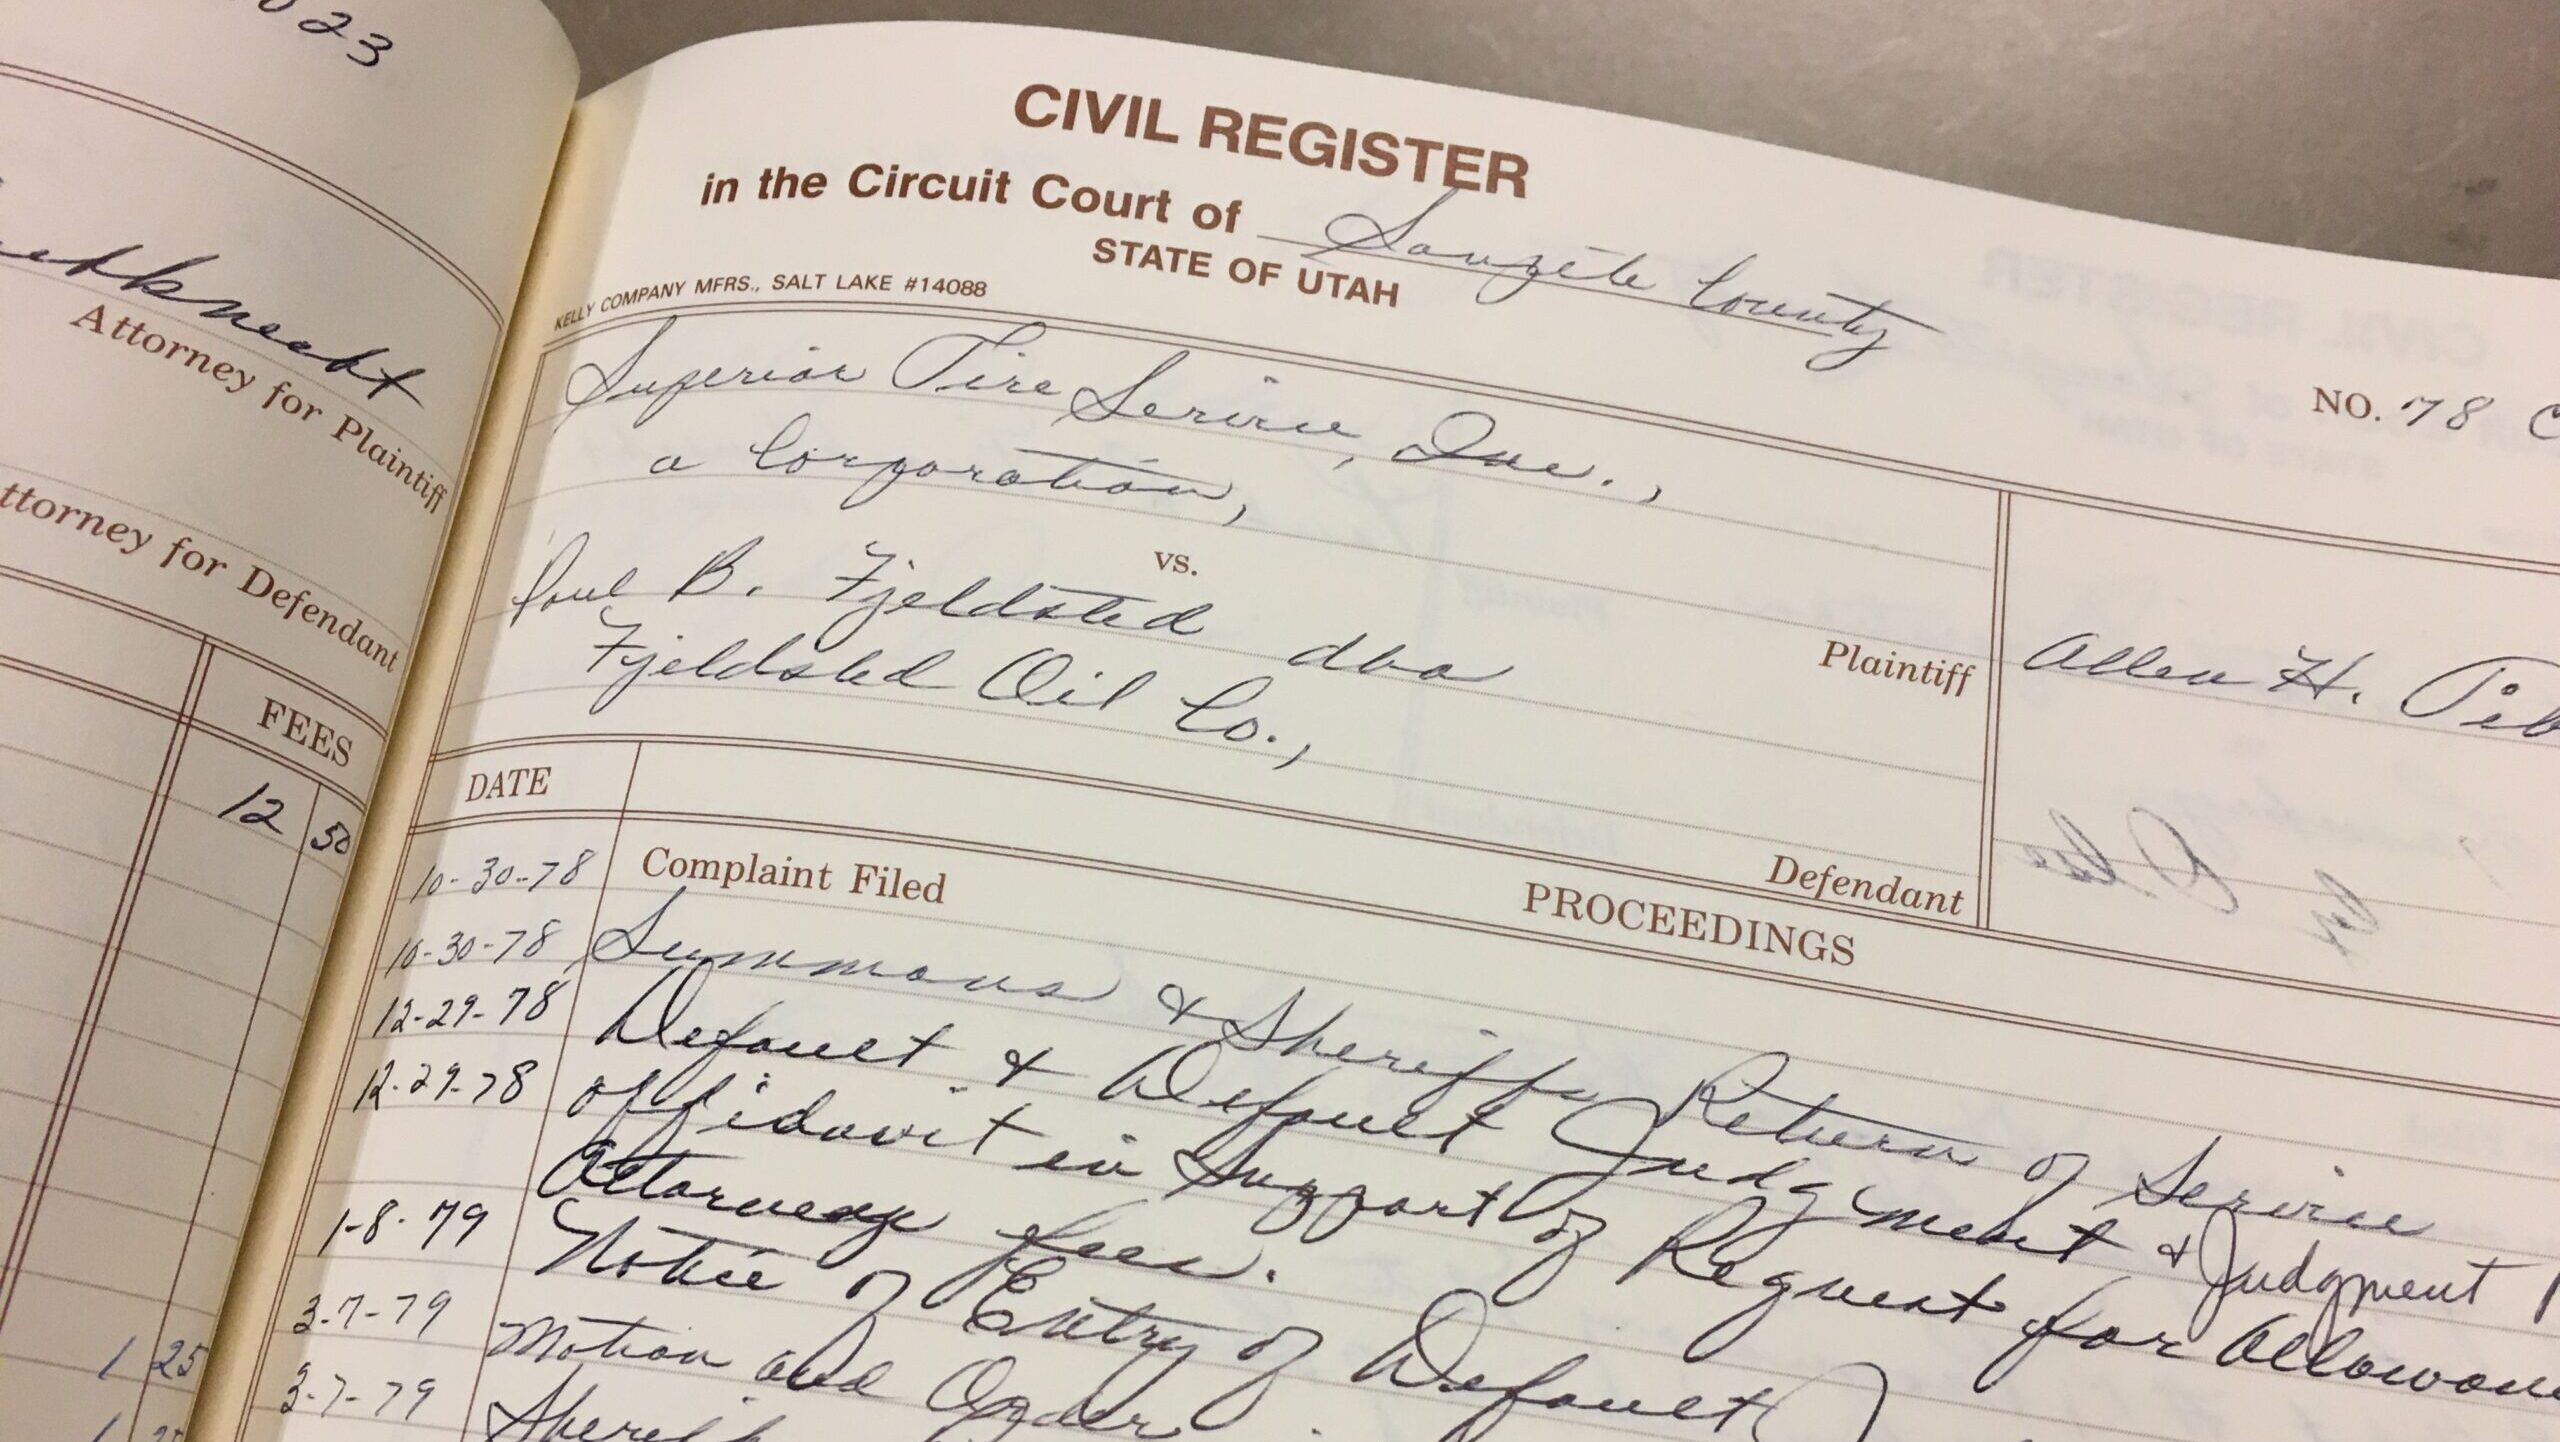 023
Attorney for Plaintiff
ttorney for Defendant
FEES
12 50
1 25
CIVIL REGISTER
in the Circuit Court of Sanpete County
STATE OF UTAH
KELLY COMPANY MFRS., SALT LAKE #14088
NO. 78 C
Superior Tire Service, Inc.,
a Corporation,
vs.
Plaintiff
Paul B. Fjeldsted dba
Fjeldsted Oil Co.,
Defendant
Allen H.
DATE
PROCEEDINGS
10-30-78 Complaint Filed
10-30-78 Summons & Sheriffs Return of Service
12-29-78 Default & Default Judgment & Judgment
12-29-78 Affidavit in Support of Request for
Attorneys fees.
1-8-79 Notice of Entry of Default
3-7-79 Motion and Order
3-7-79